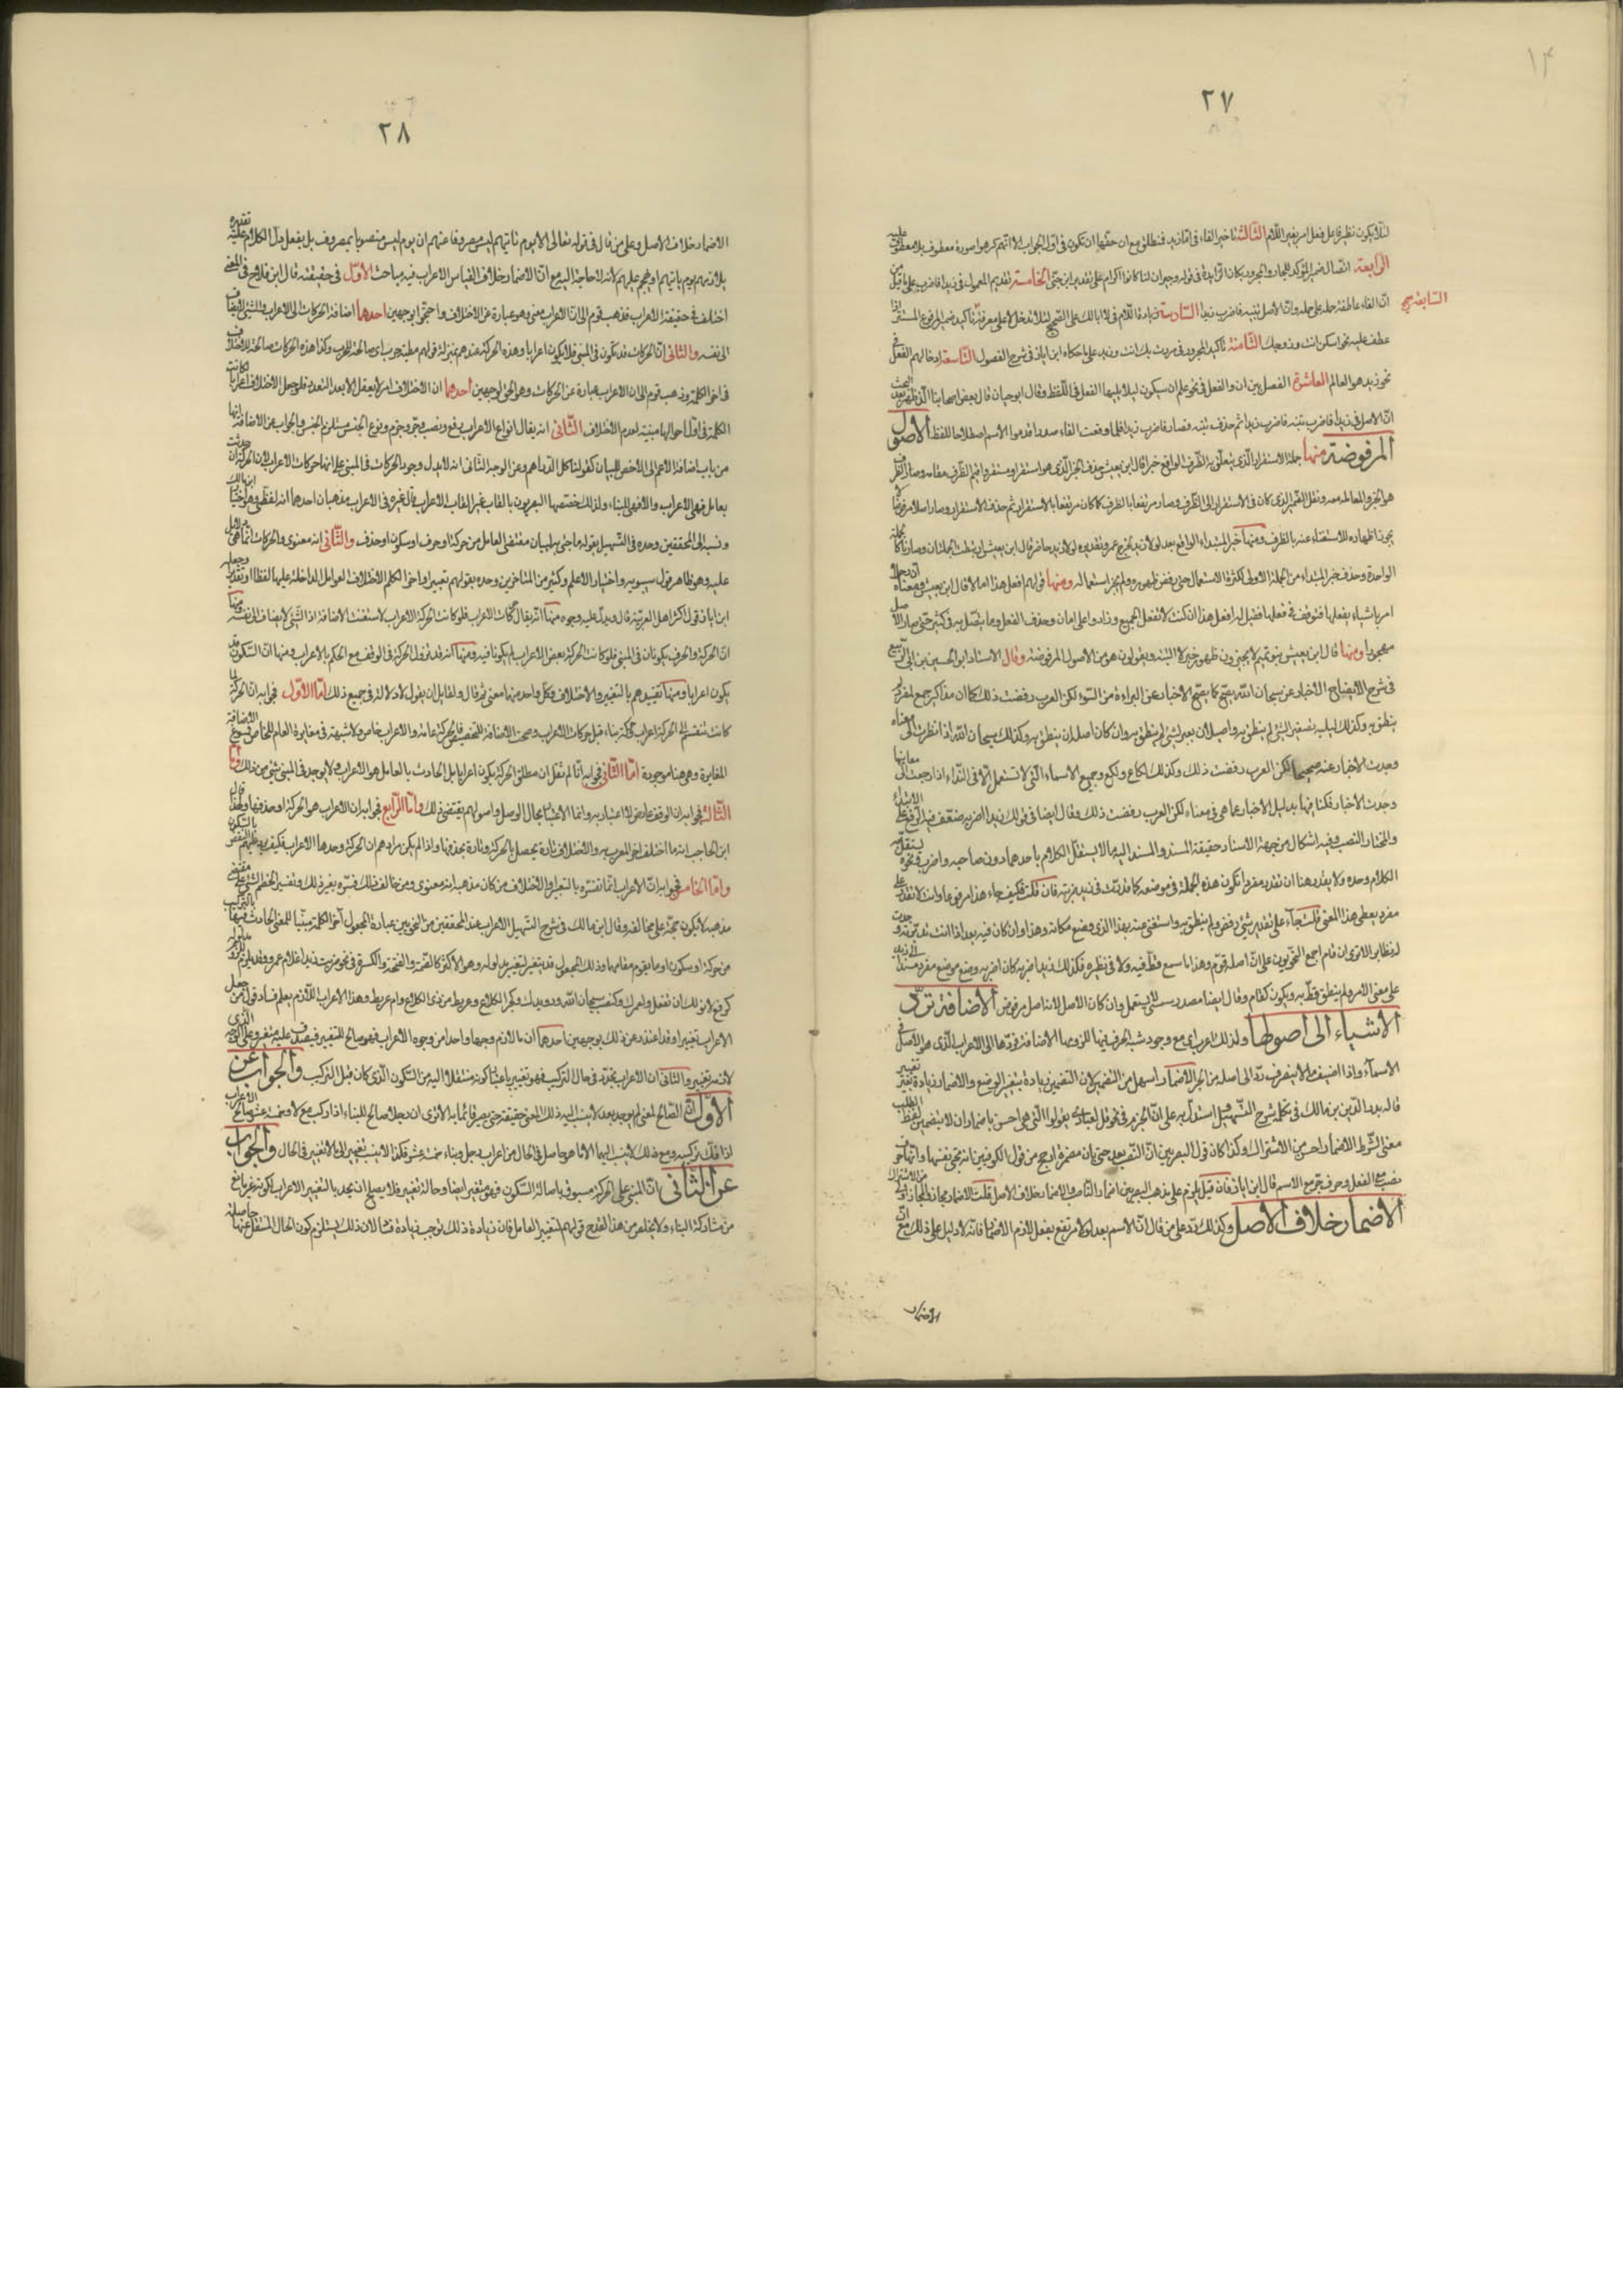 ١٤
٢٧
لئلا يكون نظير فاعل فعل امر بغير اللام الثالثة تاخير الفاء فى اما زيد فمنطلق مع ان حقها ان تكون فى اول الجواب الا انهم كرهوا صورة معطوف بلا معطوف عليه
الرابعة اتصال ضمير المؤكد للجار والمجرور بكان الزايدة فى قوله وجيران لنا كانوا كرام على تقدير ابن جنى الخامسة تقديم المعمول فى زيدا فاضرب على ما قيل من
ان الفاء عاطفة جملة على جملة وان الاصل تنبه فاضرب زيدا السادسة زيادة اللام فى لا ابا لك على الصحيح لئلا تدخل لا على معرفة تاكيد ضمير المرفوع المستتر اذا
السابعة صح
عطف عليه نحو اسكن انت وزوجك الثامنة تاكيد المجرور فى مررت بك انت وزيد على ما حكاه ابن اياز فى شرح الفصول التاسعة ادخالهم الفصل فى
نحو زيد هو العالم العاشرة الفصل بين ان والفعل فى نحو علم ان سيكون ليلا يليها الفعل فى اللفظ وقال ابو حيان قال بعض اصحابنا الذى ظهر بعد البحث
ان الاصل فى زيدا فاضرب تنبه فاضرب زيدا ثم حذف تنبه فصار فاضرب زيدا فلما وقعت الفاء صدرا قدموا الاسم اصلاحا للفظ الاصول
المرفوضة منها جملة الاستقرار الذى يتعلق به الظرف الواقع خبرا قال ابن يعيش حذف الخبر الذى هو استقر او مستقر واقيم الظرف مقامه وصار الظرف
هو الخبر والمعاملة معه ونقل الضمير الذى كان فى الاستقرار الى الظرف وصار مرتفعا بالظرف كما كان مرتفعا بالاستقرار ثم حذف الاستقرار وصار اصلا مرفوضا لا
يجوز اظهاره للاستغناء عنه بالظرف ومنها خبر المبتداء الواقع بعد لولا زيد لخرج عمرو تقديره لولا زيد حاضر قال ابن يعيش ارتبطت الجملتان وصارتا كالجملة
الواحدة وحذف خبر المبتداء من الجملة الاولى لكثرة الاستعمال حتى رفض ظهوره ولم يجز استعماله ومنها قولهم افعل هذا اما لا قال ابن يعيش ومعناه ان رجلا
امر باشياء يفعلها فتوقف فى فعلها فقيل له افعل هذا ان كنت لا تفعل الجميع وزادوا على ان ما وحذف الفعل وما يتصل به وكثر حتى صار الاصل
مهجورا ومنها قال ابن يعيش بنو تميم لا يجيزون ظهور خبر لا البتة ويقولون هو من الاصول المرفوضة وقال الاستاد ابو الحسين بن ابى الربيع
فى شرح الايضاح الاخبار عن سبحان الله يصح كما يصح الاخبار عن البراءة من السوء لكن العرب رفضت ذلك كما ان مذاكير جمع لمفرد لم
ينطق به وكذلك لييلية تصغير لشئ لم ينطق به واصيلان تصغير لشئ لم ينطق به وان كان اصله ان ينطق به وكذلك سبحان الله اذا نظرت الى معناه
وجدت الاخبار عنه صحيحا لكن العرب رفضت ذلك وكذلك لكاع ولكع وجميع الاسماء التى لا تستعمل الا فى النداء اذا رجعت الى معانيها
وجدت الاخبار ممكنا فيها بدليل الاخبار عما هى فى معناه لكن العرب رفضت ذلك وقال ايضا فى قولك زيدا اضربه ضعف فيه الرفع على الابتداء
والمختار النصب وفيه اشكال من جهة الاسناد حقيقة المسند والمسند اليه ما لا يستقل الكلام باحدهما دون صاحبه واضرب ونحوه يستقل به
الكلام وحده ولا يقدر هنا ان تقدر مفردا تكون هذه الجملة فى موضعه كما قدرت فى زيد ضربته فان قلت فكيف جاء هذا مرفوعا وانت لا تقدر على
مفرد يعطى هذا المعنى قلت جاء على تقدير شئ رفض ولم ينطق به واستغنى عنه بهذا الذى وضع مكانه وهذا وان كان فيه بعد اذا انت تدبرته وجدت
له نظاير الا ترى ان قام اجمع النحويون على ان اصله قوم وهذا ما سمع قط فيه ولا فى نظيره فكذلك زيدا اضربه كان اضربه وضع موضع مفرد مسند الى زيد
على معنى الامر ولم ينطق قط به ويكون كقام وقال ايضا مصدر عسى لا يستعمل وان كان الاصل لانه اصل مرفوض الاضافة ترد
الاشياء الى اصولها ولذلك اعرب اى مع وجود شبه الحرف فيها للزومها الاضافة فردتها الى الاعراب الذى هو الاصل فى
الاسماء واذا اضيف ما لا ينصرف رد الى اصله من الجر الاضمار اسهل من التضمين لان التضمين زيادة بتغيير الوضع والاضمار زيادة بغير تغيير
قاله بدر الدين بن مالك فى تكملة شرح التسهيل استدل به على ان الجزم فى نحو قل لعبادى يقولوا التى هى احسن باضمار ان لا بتضمين لفظ الطلب
معنى الشرط الاضمار احسن من الاشتراك وكذا كان قول البصريين ان النصب بعد حتى بان مضمرة ارجح من قول الكوفيين انه بحتى نفسها وانها حرف
نصب مع الفعل وحرف جر مع الاسم قال ابن اياز فان قيل يلزم على مذهب البصريين اضمار الناصب والاضمار خلاف الاصل قلت الاضمار مجاز والمجاز اولى من الاشتراك
الاضمار خلاف الاصل وكذلك رد على من قال ان الاسم بعد لولا مرتفع بفعل لازم الاضمار فانه لا دليل على ذلك مع ان
الاضمار
٢٨
الاضمار خلاف الاصل وعلى من قال فى قوله تعالى الا يوم ياتيهم ليس مصروفا عنهم ان يوم ليس منصوبا بمصروف بل بفعل دل الكلام عليه تقديره
يلازمهم يوم ياتيهم او يهجم عليهم لانه لا حاجة اليه مع ان الاضمار خلاف القياس الاعراب فيه مباحث الاول فى حقيقته قال ابن فلاح فى المغنى
اختلف فى حقيقة الاعراب فذهب قوم الى ان الاعراب معنى وهو عبارة عن الاختلاف واحتجوا بوجهين احدهما اضافة الحركات الى الاعراب والشئ لا يضاف
الى نفسه والثانى ان الحركات قد تكون فى المبنى فلا يكون اعرابا وهذه الحركة عندهم بمنزلة قولهم مطية حرب اى صالحة للحرب وكذا هذه الحركات صالحة للاختلاف
فى اخر الكلمة وذهب قوم الى ان الاعراب عبارة عن الحركات وهو الحق لوجهين احدهما ان الاختلاف امر لا يعقل الا بعد التعدد فلو جعل الاختلاف اعرابا لكانت
الكلمة فى اول احوالها مبنية لعدم الاختلاف الثانى انه يقال انواع الاعراب رفع ونصب وجر وجزم ونوع الجنس مستلزم الجنس والجواب عن الاضافة انها
من باب اضافة الاعم الى الاخص للبيان كقولنا كل الدراهم وعن الوجه الثانى انه لا يدل وجود الحركات فى المبنى على انها حركات الاعراب لان الحركة ان حدثت
بعامل فهى الاعراب والا فهى للبناء ولذلك خصصها البصريون بالقاب غير القاب الاعراب وقال غيره فى الاعراب مذهبان احدهما انه لفظى وهو اختيار ابن مالك
ونسبه الى المحققين وحده فى التسهيل بقوله ما جئ به لبيان مقتضى العامل من حركة او حرف او سكون او حذف والثانى انه معنوى والحركات انما هى دلائل
عليه وهو ظاهر قول سيبويه واختيار الاعلم وكثير من المتاخرين وحدوه بقولهم تغيير اواخر الكلم لاختلاف العوامل الداخلة عليها لفظا او تقديرا وجعله
ابن اياز قول اكثر اهل العربية قال ويدل عليه وجوه منها انه يقال حركات الاعراب فلو كانت الحركة الاعراب لامتنعت الاضافة اذ الشئ لا يضاف الى نفسه ومنها
ان الحركة والحرف يكونان فى المبنى فلو كانت الحركة بعينها الاعراب لم يكونا فيه ومنها انه قد تزول الحركة فى الوقف مع الحكم بالاعراب ومنها ان السكون قد
يكون اعرابا ومنها تفسيرهم بالتغيير والاختلاف وكل واحد منهما معنى ثم قال ولقايل ان يقول لا دلالة فى جميع ذلك اما الاول فجوابه ان الحركة لما
كانت تنقسم الى حركة اعراب وحركة بناء قيل حركات الاعراب وصحت الاضافة للتخصيص فالحركة عامة والاعراب خاص ولا شبهة فى مغايرة العام للخاص فسوغ الاضافة
المغايرة وهى هنا موجودة اما الثانى فجوابه انا لم نقل ان مطلق الحركة يكون اعرابا بل الحادث بالعامل هو الاعراب ولا يوجد فى المبنى شئ من ذلك واما
الثالث فجوابه ان الوقف عارض لا اعتبار به وانما الاعتبار بحال الوصل واصولهم يقتضى ذلك واما الرابع فجوابه ان الاعراب هو الحركة او حذفها ولهذا قال
ابن الحاجب انه ما اختلف اخر المعرب به والاختلاف تارة يحصل بالحركة وتارة بحذفها واذا لم يكن مرادهم ان الحركة وحدها الاعراب فكيف يرد عليهم النقض بالسكون
واما الخامس فجوابه ان الاعراب انما تفسره بالتغيير والاختلاف من كان مذهبه انه معنوى ومن خالف ذلك فسره بغير ذلك وتفسير الخصم الشئ على مقتضى
مذهبه لا يكون حجة على مخالفه وقال ابن مالك فى شرح التسهيل الاعراب عند المحققين من النحويين عبارة عن المجعول آخر الكلمة مبينا للمعنى الحادث فيها بالتركيب
من حركة او سكون او ما يقوم مقامهما وذلك المجعول قد يتغير لتغير مدلوله وهو الاكثر كالضمة والفتحة والكسرة فى نحو ضرب زيد غلام عمرو وقد يلزم للزوم مدلوله
كرفع لا نولك ان تفعل ولعمرك وكنصب سبحان الله ورويدك وكجر الكلاع وعريط من ذى الكلاع وام عريط وهذا الاعراب اللازم يعلم فساد قول من جعل
الاعراب تغييرا وقد اعتذر عن ذلك بوجهين احدهما ان ما لازم وجها واحدا من وجوه الاعراب فهو صالح للتغيير فيصدق عليه متغير وعلى الوجه الذى
لازمه تغيير والثانى ان الاعراب تجدد فى حال التركيب فهو تغيير باعتبار كونه منتقلا اليه من السكون الذى كان قبل التركيب والجواب عن
الاول ان الصالح لمعنى لم يوجد بعد لا ينسب اليه ذلك المعنى حقيقة حتى يصير قائما به الا ترى ان رجلا صالح للبناء اذا ركب مع لا وخمسة عشر صالح للاعراب
اذا فك تركيبه ومع ذلك لا ينسب اليهما الا ما هو حاصل فى الحال من اعراب رجل وبناء خمسة عشر فكذا لا ينسب تغيير الى ما لا تغيير فى الحال والجواب
عن الثانى ان المبنى على الحركة مسبوق باصالة السكون فهو متغير ايضا وحاله تغيير فلا يصلح ان يحد بالتغيير الاعراب لكونه غير مانع
من مشاركة البناء ولا يخلص من هذا القدح قولهم لتغيير العامل فان زيادة ذلك توجب زيادة فساد لان ذلك يستلزم كون الحال المنتقل عنها حاصلة